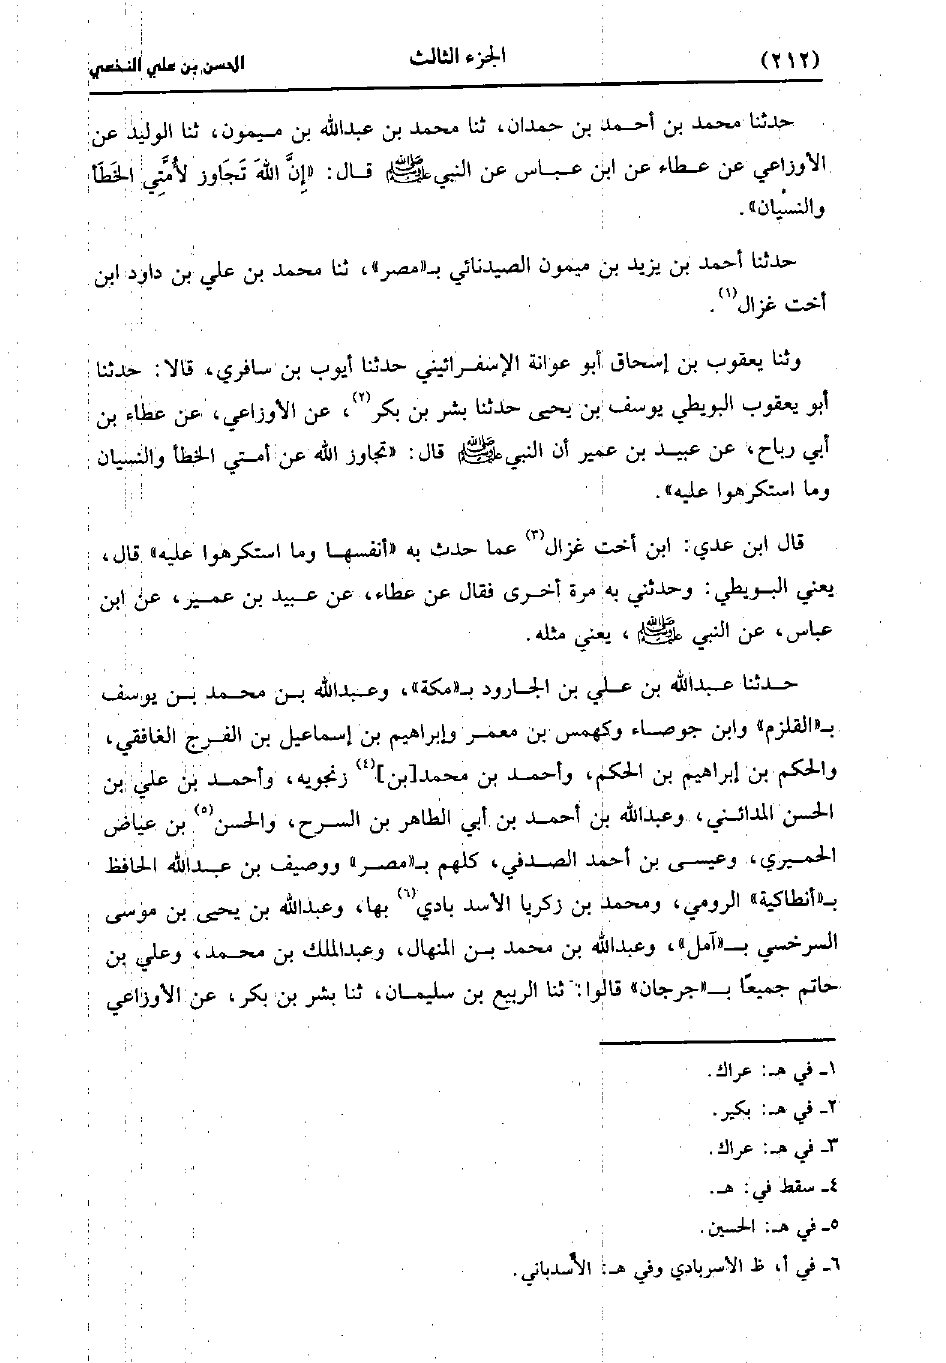 (٢١٢) الجزء الثالث الحسن بن علي النخعي
حدثنا محمد بن أحمد بن حمدان، ثنا محمد بن عبدالله بن ميمون، ثنا الوليد عن
الأوزاعي عن عطاء عن ابن عباس عن النبي ﷺ قال: «إنَّ اللهَ تَجَاوز لأُمَّتِي الخَطَأَ
والنسْيان».
حدثنا أحمد بن يزيد بن ميمون الصيدنائي بـ«مصر»، ثنا محمد بن علي بن داود ابن
أخت غزال(١).
وثنا يعقوب بن إسحاق أبو عوانة الإسفرائيني حدثنا أيوب بن سافري، قالا: حدثنا
أبو يعقوب البويطي يوسف بن يحيى حدثنا بشر بن بكر(٢)، عن الأوزاعي، عن عطاء بن
أبي رباح، عن عبيد بن عمير أن النبي ﷺ قال: «تجاوز الله عن أمتي الخطأ والنسيان
وما استكرهوا عليه».
قال ابن عدي: ابن أخت غزال(٣) عما حدث به «أنفسها وما استكرهوا عليه» قال،
يعني البويطي: وحدثني به مرة أخرى فقال عن عطاء، عن عبيد بن عمير، عن ابن
عباس، عن النبي ﷺ، يعني مثله.
حدثنا عبدالله بن علي بن الجارود بـ«مكة»، وعبدالله بن محمد بن يوسف
بـ«القلزم» وابن جوصاء وكهمس بن معمر وإبراهيم بن إسماعيل بن الفرج الغافقي،
والحكم بن إبراهيم بن الحكم، وأحمد بن محمد[بن](٤) زنجويه، وأحمد بن علي بن
الحسن المدائني، وعبدالله بن أحمد بن أبي الطاهر بن السرح، والحسن(٥) بن عياض
الحميري، وعيسى بن أحمد الصدفي، كلهم بـ«مصر» ووصيف بن عبدالله الحافظ
بـ«أنطاكية» الرومي، ومحمد بن زكريا الأسد بادي(٦) بها، وعبدالله بن يحيى بن موسى
السرخسي بـ«آمل»، وعبدالله بن محمد بن المنهال، وعبدالملك بن محمد، وعلي بن
حاتم جميعًا بـ«جرجان» قالوا: ثنا الربيع بن سليمان، ثنا بشر بن بكر، عن الأوزاعي
١ـ في هـ: عراك.
٢ـ في هـ: بكير.
٣ـ في هـ: عراك.
٤ـ سقط في: هـ.
٥ـ في هـ: الحسين.
٦ـ في أ، ظ الأسربادي وفي هـ: الأسدباني.